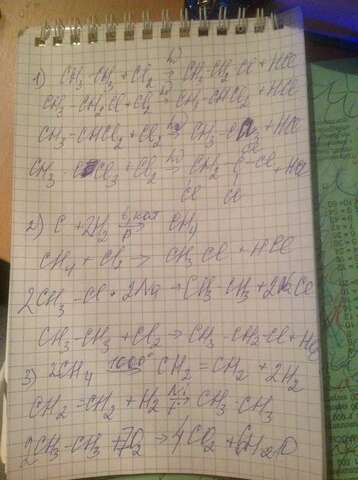 1) CH3-CH3 + Cl2 hν→ CH3-CH2-Cl + HCl
CH3-CH2Cl + Cl2 hν→ CH3-CHCl2 + HCl
CH3-CHCl2 + Cl2 hν→ CH3-CCl3 + HCl
CH3-CCl3 + Cl2 hν→ CH2-C-Cl + HCl
Cl Cl Cl
2) C + 2H2 t,кат→ P CH4
CH4 + Cl2 → CH3Cl + HCl
2CH3-Cl + 2Na → CH3-CH3 + 2NaCl
CH3-CH3 + Cl2 → CH3-CH2-Cl + HCl
3) 2CH4 1000° CH2=CH2 + 2H2
CH2=CH2 + H2 Ni→ CH3-CH3
2CH3-CH3 + 7O2 → 4CO2 + 6H2O